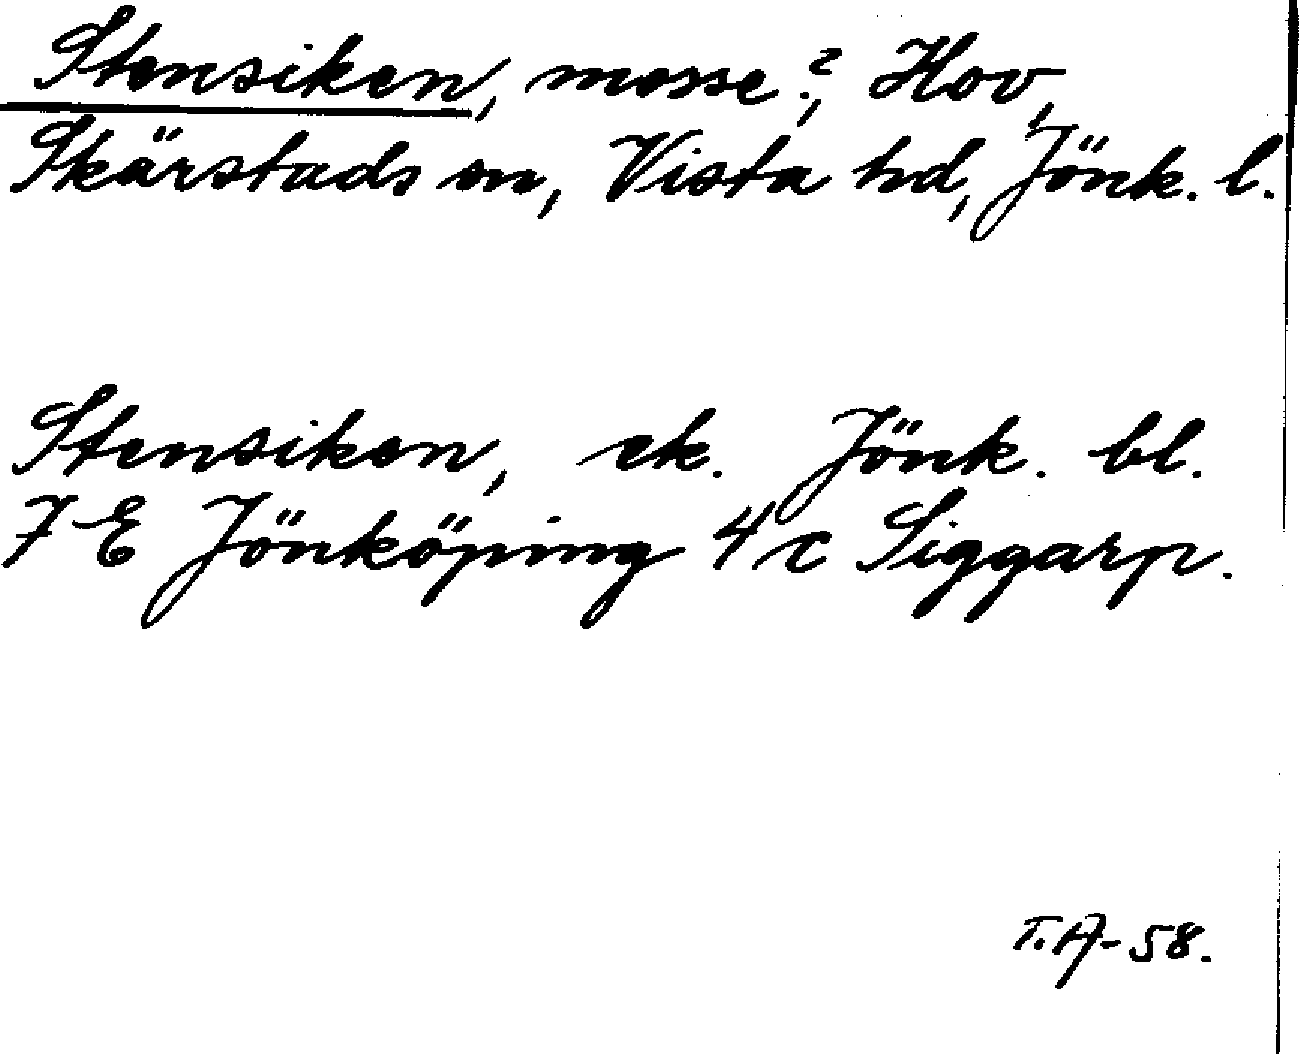 Stensiken, mosse?, Hov,
Skärstads sn, Vista hd, Jönk. l.
Stensiken, ek. Jönk. bl.
7 E Jönköping 4 c Siggarp.
T.A-58.